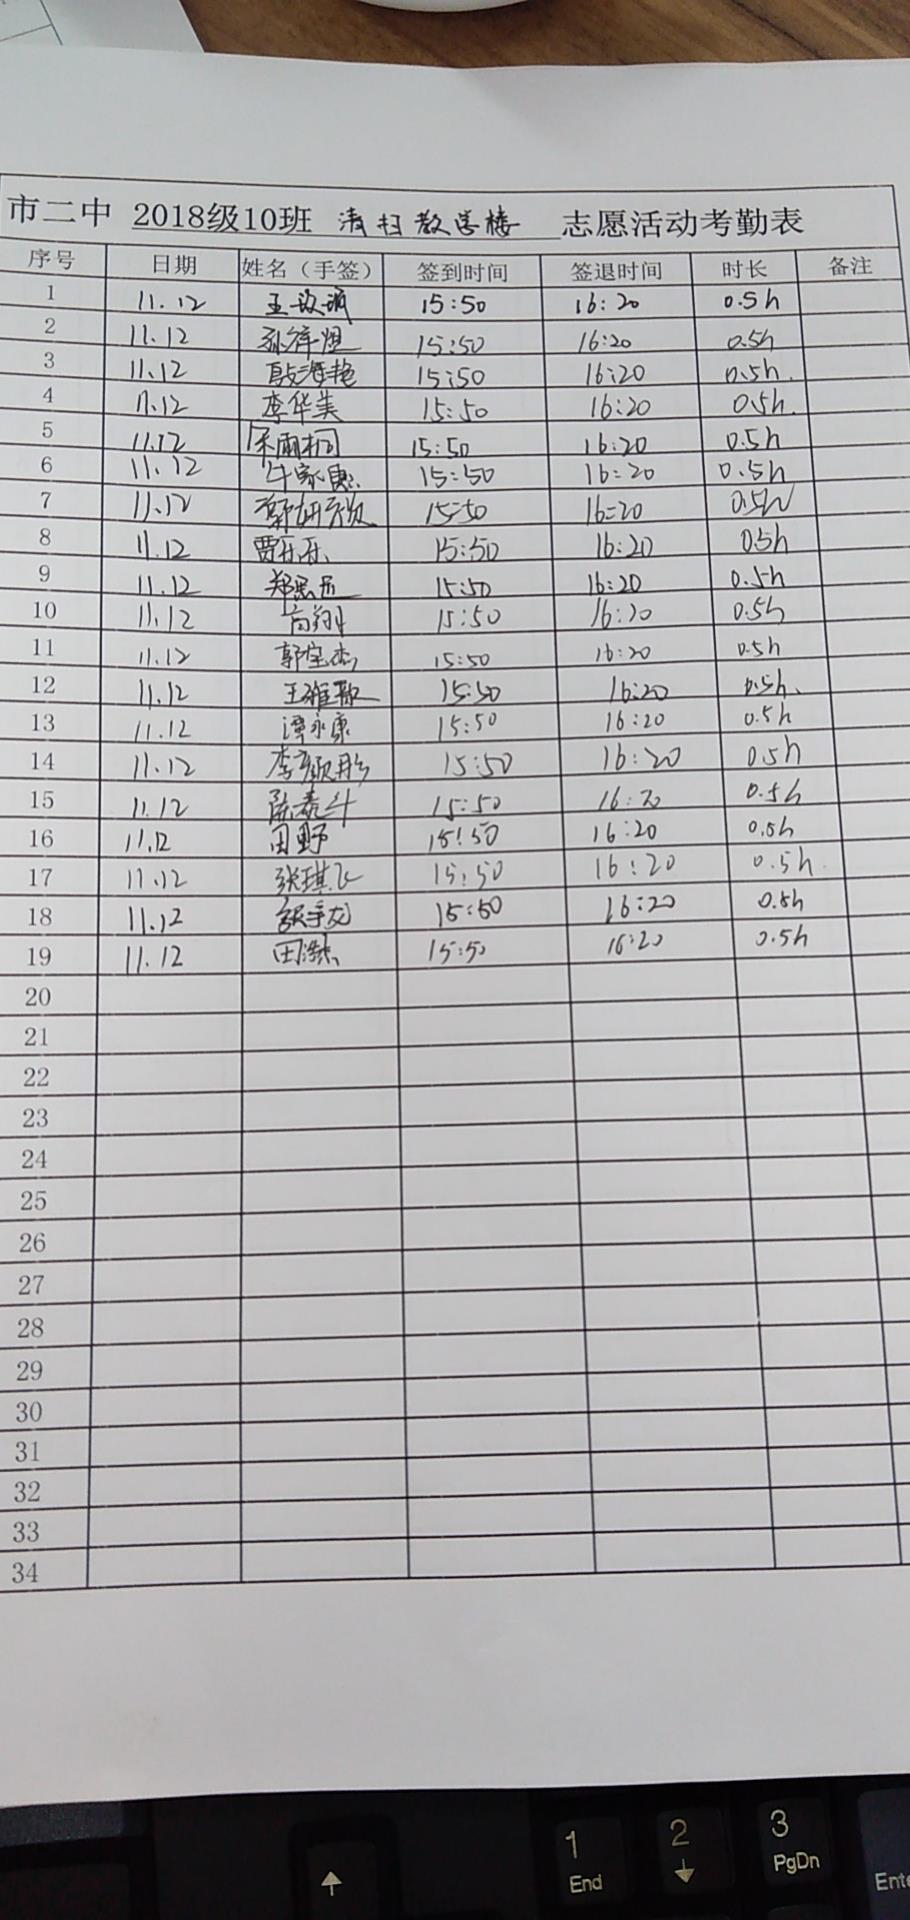 市二中 2018级10班 清扫教学楼 志愿活动考勤表
序号 日期 姓名（手签） 签到时间 签退时间 时长 备注
1 11.12 王 15:50 16:20 0.5h
2 11.12 15:50 16:20 0.5h
3 11.12 殷海艳 15:50 16:20 0.5h.
4 11.12 李华美 15:50 16:20 0.5h.
5 11.12 雨桐 15:50 16:20 0.5h
6 11.12 牛家康 15:50 16:20 0.5h
7 11.12 郭妍欣 15:50 16:20 0.5h
8 11.12 贾乐乐 15:50 16:20 0.5h
9 11.12 郑思 15:50 16:20 0.5h
10 11.12 高翔 15:50 16:20 0.5h
11 11.12 郭宝杰 15:50 16:20 0.5h
12 11.12 王雅 15:50 16:20 0.5h.
13 11.12 谭永康 15:50 16:20 0.5h
14 11.12 李颜彤 15:50 16:20 0.5h
15 11.12 陈泰斗 15:50 16:20 0.5h
16 11.12 田野 15:50 16:20 0.5h
17 11.12 张琪飞 15:50 16:20 0.5h.
18 11.12 张宇龙 15:50 16:20 0.5h
19 11.12 田浩杰 15:50 16:20 0.5h
20
21
22
23
24
25
26
27
28
29
30
31
32
33
34
1 2 3
End ↓ PgDn
↑ Ente